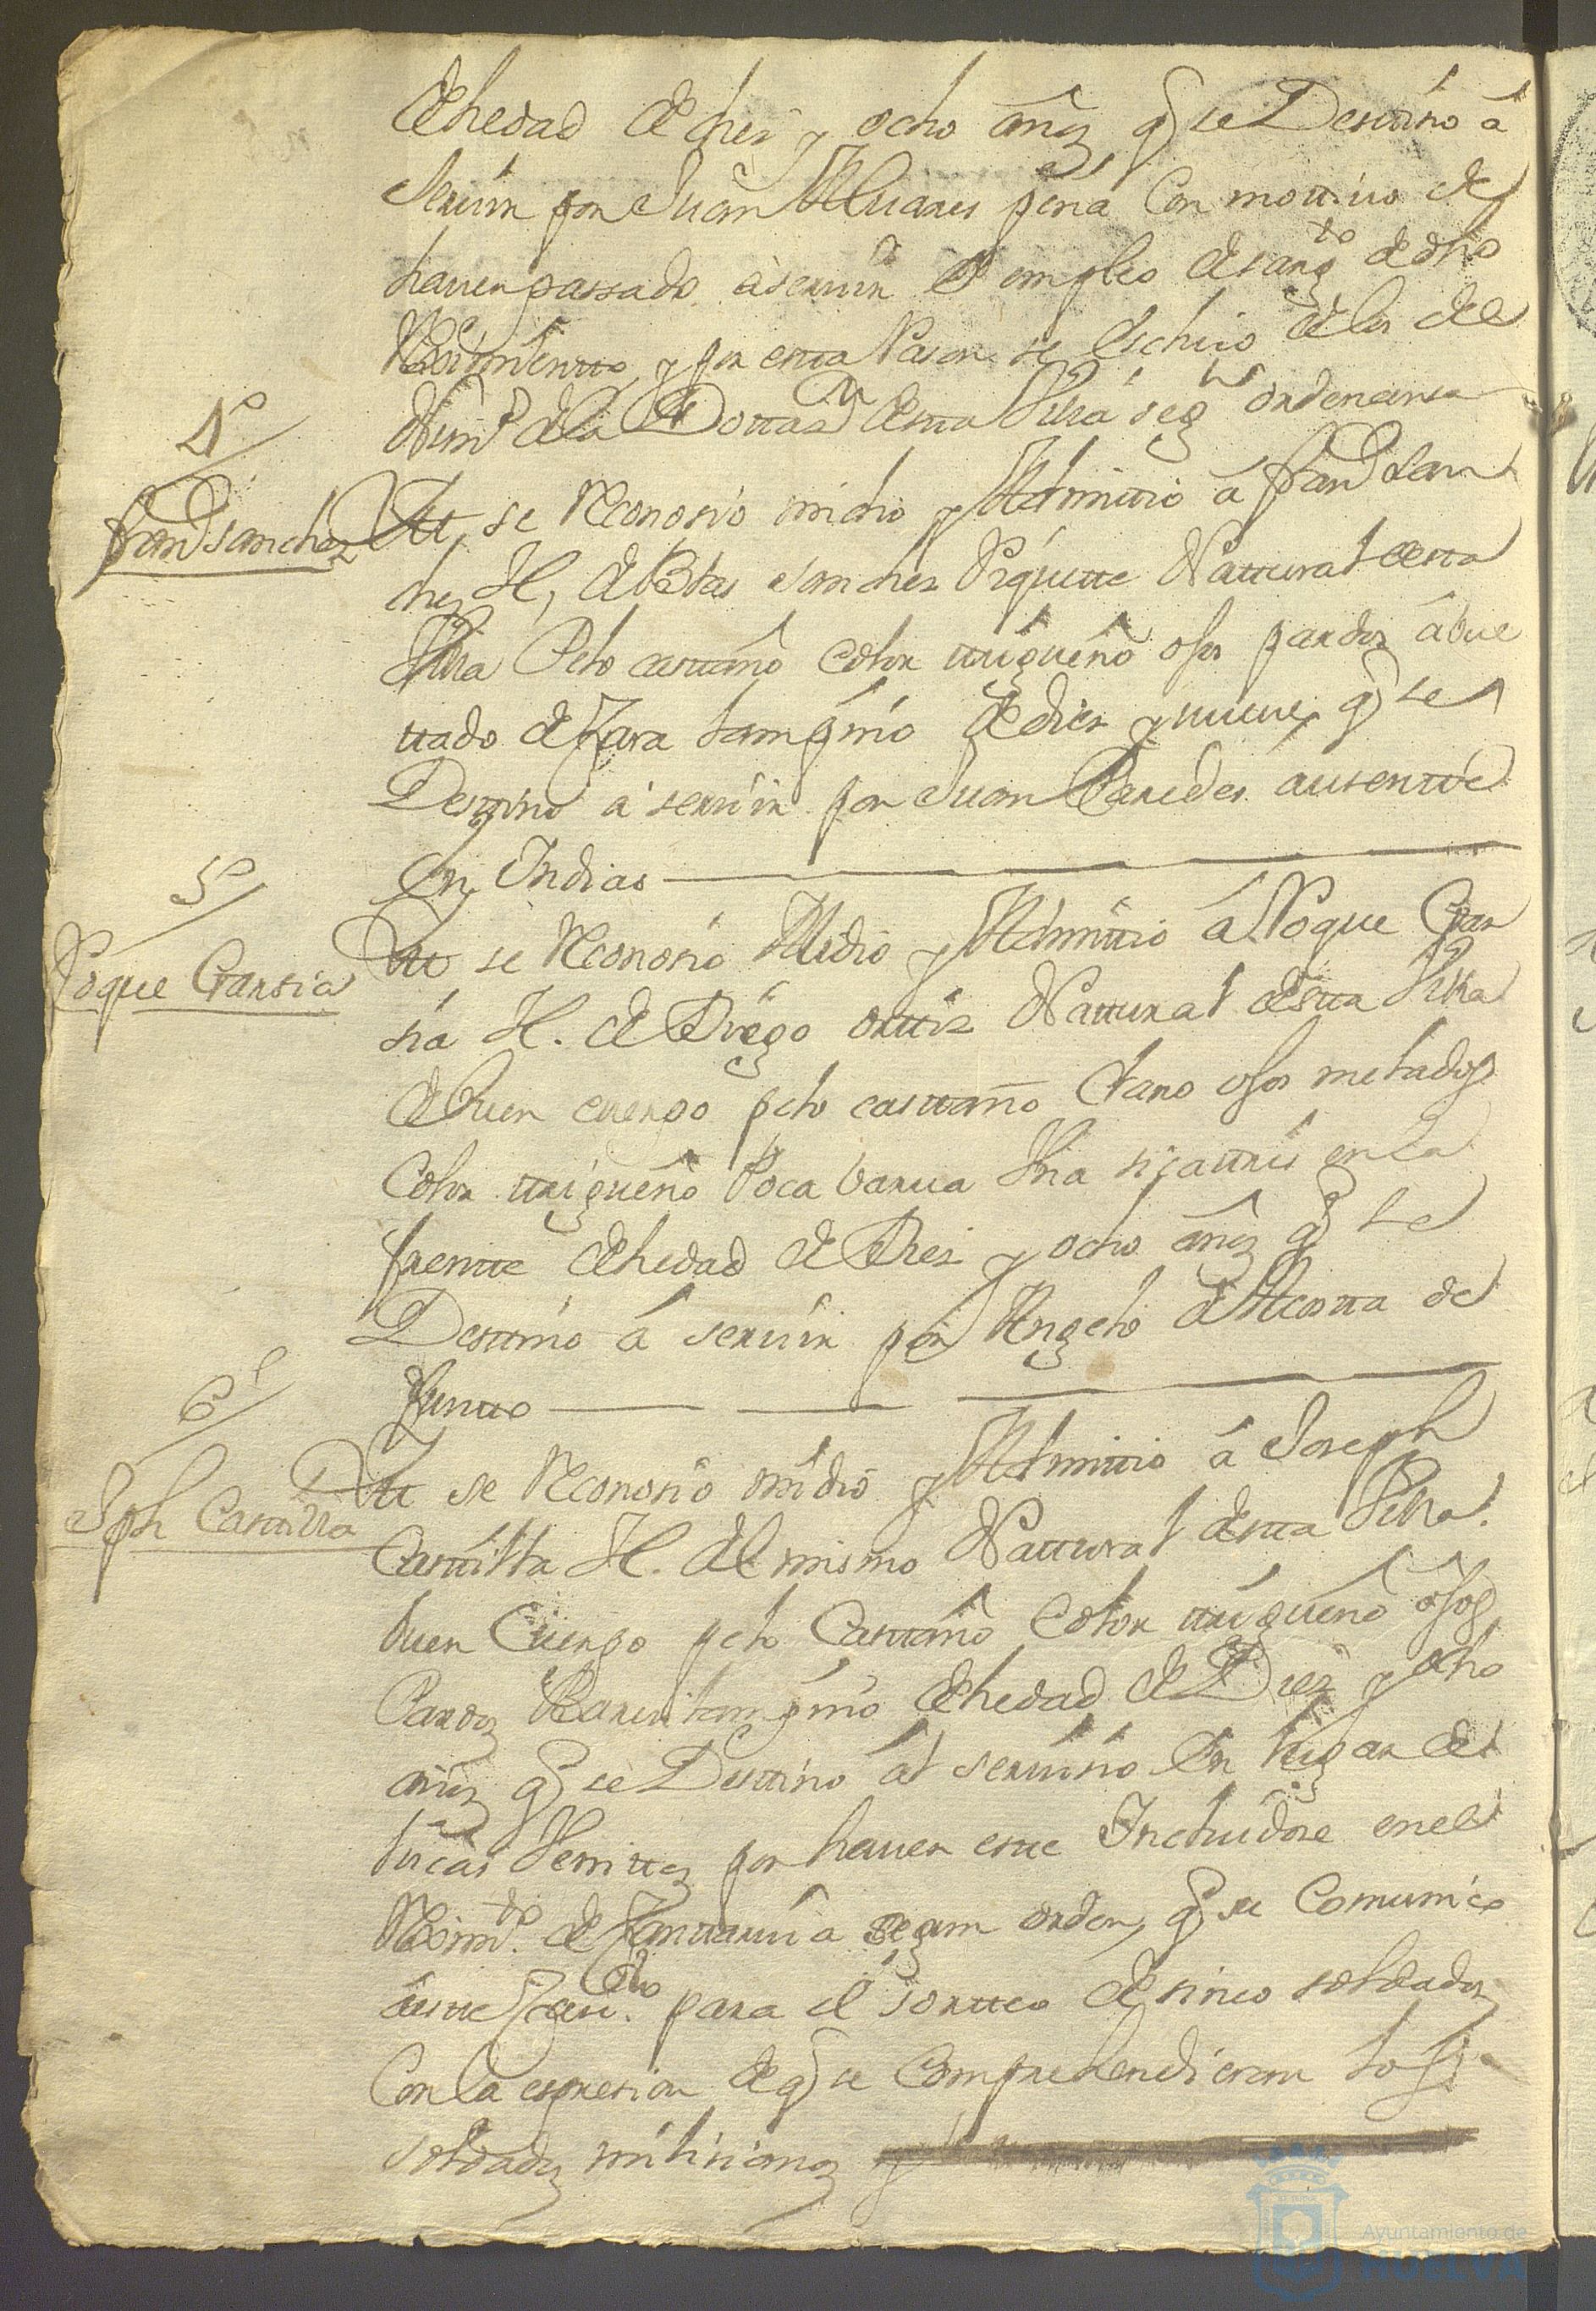 de hedad de dies y ocho años q se Desttino â
seruir por Juan Alluares peña Con mottiuo de
hauer passado â seruir el empleo de sargto de dho
Reximientto, y por estta Rason se escluio de los del
Num.o de la Dottazn destta Villa seg ordenansa
4º
franco sanchez
Itt. se Reconosio midio y Admittio â franco san
chez H, de Blas sanches Piquette Natturàl destta
Villa Pelo casttaño Color ttrigueño ojos pardos abue
ttado de Cara lampiño de dies y nueue, q se
Desttino â seruir por Juan Paredes ausentte
En Indias
5º
Roque Garsia
Itt se Reconosio Midio y Admittio â Roque Gar
sia H. de Diego orttis Natturàl destta Villa
de buen cuerpo pelo casttaño Claro ojos melados
Color ttrigueño Poca barua Vna sicattris en la
frentte de hedad de Dies y ocho años q se
Desttino â seruir por Angelo de Acostta de
funtto
6º
Jph Casttilla
Itt se Reconosio midio y Admittio â Joseph
Casttilla H. del mismo Natturàl destta Villa.
buen Cuerpo pelo Casttaño Color ttrigueño ojos
Pardos Barbilampiño de hedad de Dies y ocho
años q se Desttino âl seruisio En lugar de
lucas Venittes por hauer estte Incluidose en el
Reximto. de Canttauria segun orden, q se Comunico
â estte Cauildo. para el sortteo de sinco soldados
Con la espresion de q se Comprehendieran los
soldados milisianos y
Ayuntamiento de
HUELVA